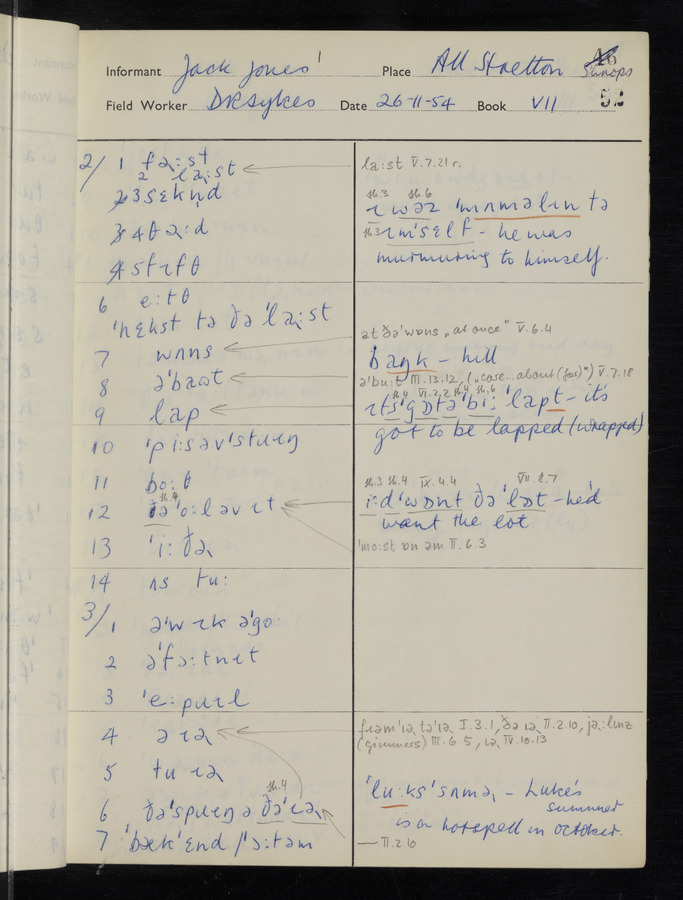 Informant Jack Jones 1 Place All Stretton Shrops 46
Field Worker DRSykes Date 26-11-54 Book VII 52
2/ 1 fəː˞st
2 laːst
3 sɛkn̩d
4 θəː˞d
5 fɪfθ
6 eːtθ
ˈnɛkst tə ðə ˈlaːst
7 wʌns
8 əˈbaʊt
9 lap
10 ˈpiːs əv ˈstɹɪŋ
11 boːθ
12 ðə ˈoːl əv ɪt
13 ˈiːðə˞
14 ʌs tuː
3/ 1 əˈwɪk əˈgoː
2 əˈfɔːtnɪt
3 ˈeːpɹɪl
4 ə ɪə˞
5 tu ɪə˞
6 ðə ˈspɹɪŋ ə ðə ˈɪə˞
7 ˈbækˈɛnd / ˈɔːtəm
laːst V.7.21 r.
sh.3 sh.6
ɪ wəz ˈmʌməlɪn tə
sh.3 ɪmˈsɛlf – he was
murmuring to himself.
ət ðə ˈwɒns „at once" V.6.4
baŋk – hill
əˈbuːt III.13.12, („case...about (for)") V.7.18
sh.4 VI.2.2 sh.4 sh.6
ɪts ˈgɒt ə ˈbiː ˈlapt – it's
got to be lapped (wrapped)
sh.3 sh.4 IX.4.4 VII.8.7
iːd ˈwɒnt ðə ˈlɒt – he'd
want the lot
ˈmoːst ɒn əm II.6.3
sh.4
fɹəm ˈɪə˞ tə ˈɪə˞ I.3.1, ðə ɪə˞ II.2.10, jəː˞lɪnz
(gimmers) III.6.5, ɪə˞ IV.10.13
sh.4
ˈluːks ˈsʌmə˞ – Luke's
summer
is a hotspell in October.
— II.2.10